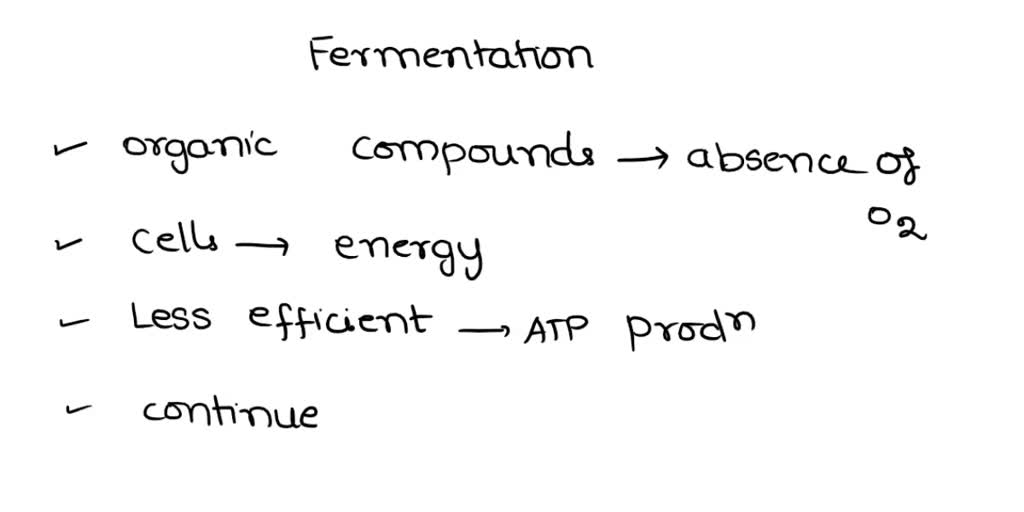 Fermentation
✓ organic compounds → absence of
O2
✓ cells → energy
✓ Less efficient → ATP prodn
✓ continue